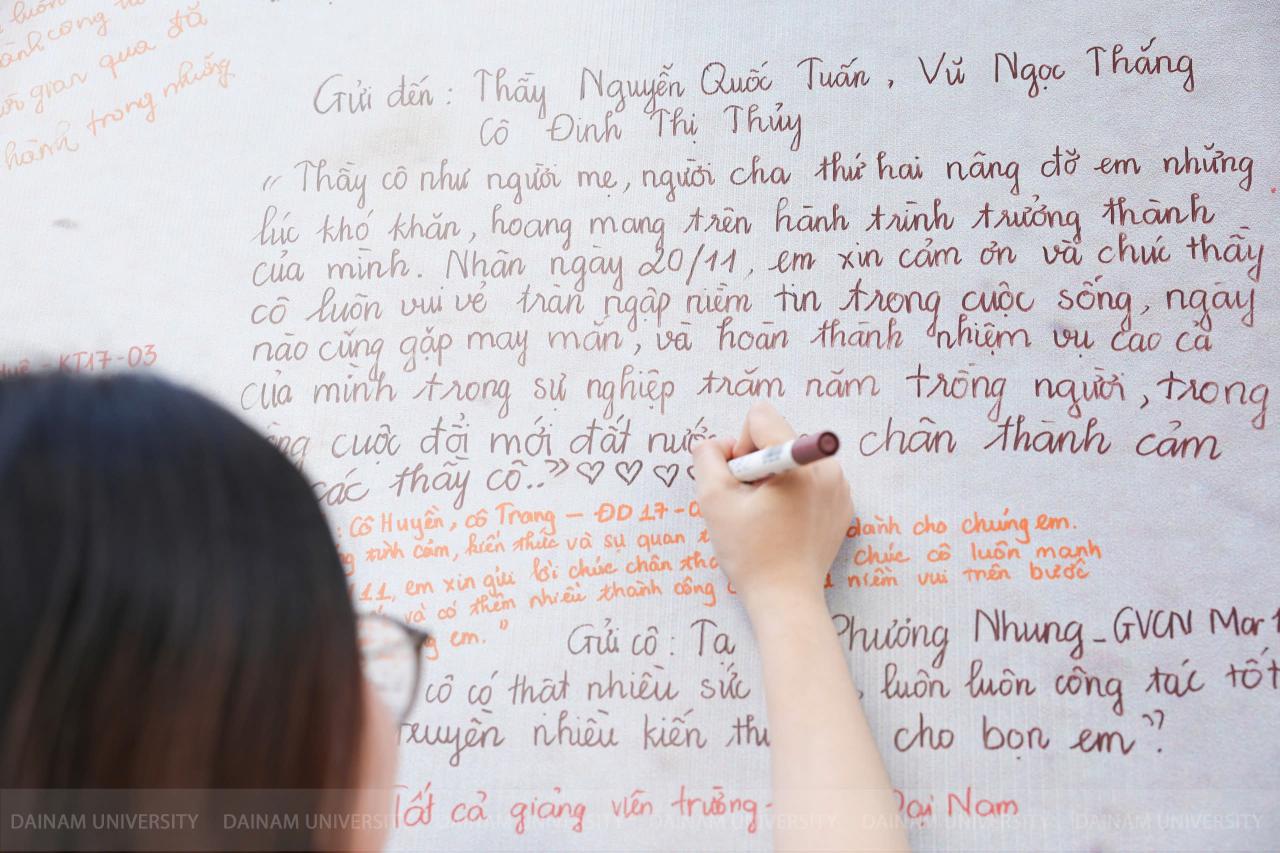 luôn
thành công
gian qua đã
hành trong những
Gửi đến : Thầy Nguyễn Quốc Tuấn , Vũ Ngọc Thắng
Cô Đinh Thị Thủy
" Thầy cô như người mẹ, người cha thứ hai nâng đỡ em những
lúc khó khăn, hoang mang trên hành trình trưởng thành
của mình. Nhân ngày 20/11, em xin cảm ơn và chúc thầy
cô luôn vui vẻ tràn ngập niềm tin trong cuộc sống, ngày
nào cũng gặp may mắn, và hoàn thành nhiệm vụ cao cả
của mình trong sự nghiệp trăm năm trồng người, trong
cuộc đổi mới đất nước chân thành cảm
các thầy cô.." ♡ ♡ ♡
KT17-03
: Cô Huyền, cô Trang - ĐD 17-0 dành cho chúng em.
tình cảm, kiến thức và sự quan chúc cô luôn mạnh
11, em xin gửi lời chúc chân niềm vui trên bước
và có thêm nhiều thành công
em. "
Gửi cô : Tạ Phương Nhung - GVCN Mar
cô có thật nhiều sức , luôn luôn công tác tốt
truyền nhiều kiến cho bọn em "
Tất cả giảng viên trường Đại Nam
DAINAM UNIVERSITY DAINAM UNIVERSITY DAINAM UNIVERSITY DAINAM UNIVERSITY DAINAM UNIVERSITY DAINAM UNIVERSITY